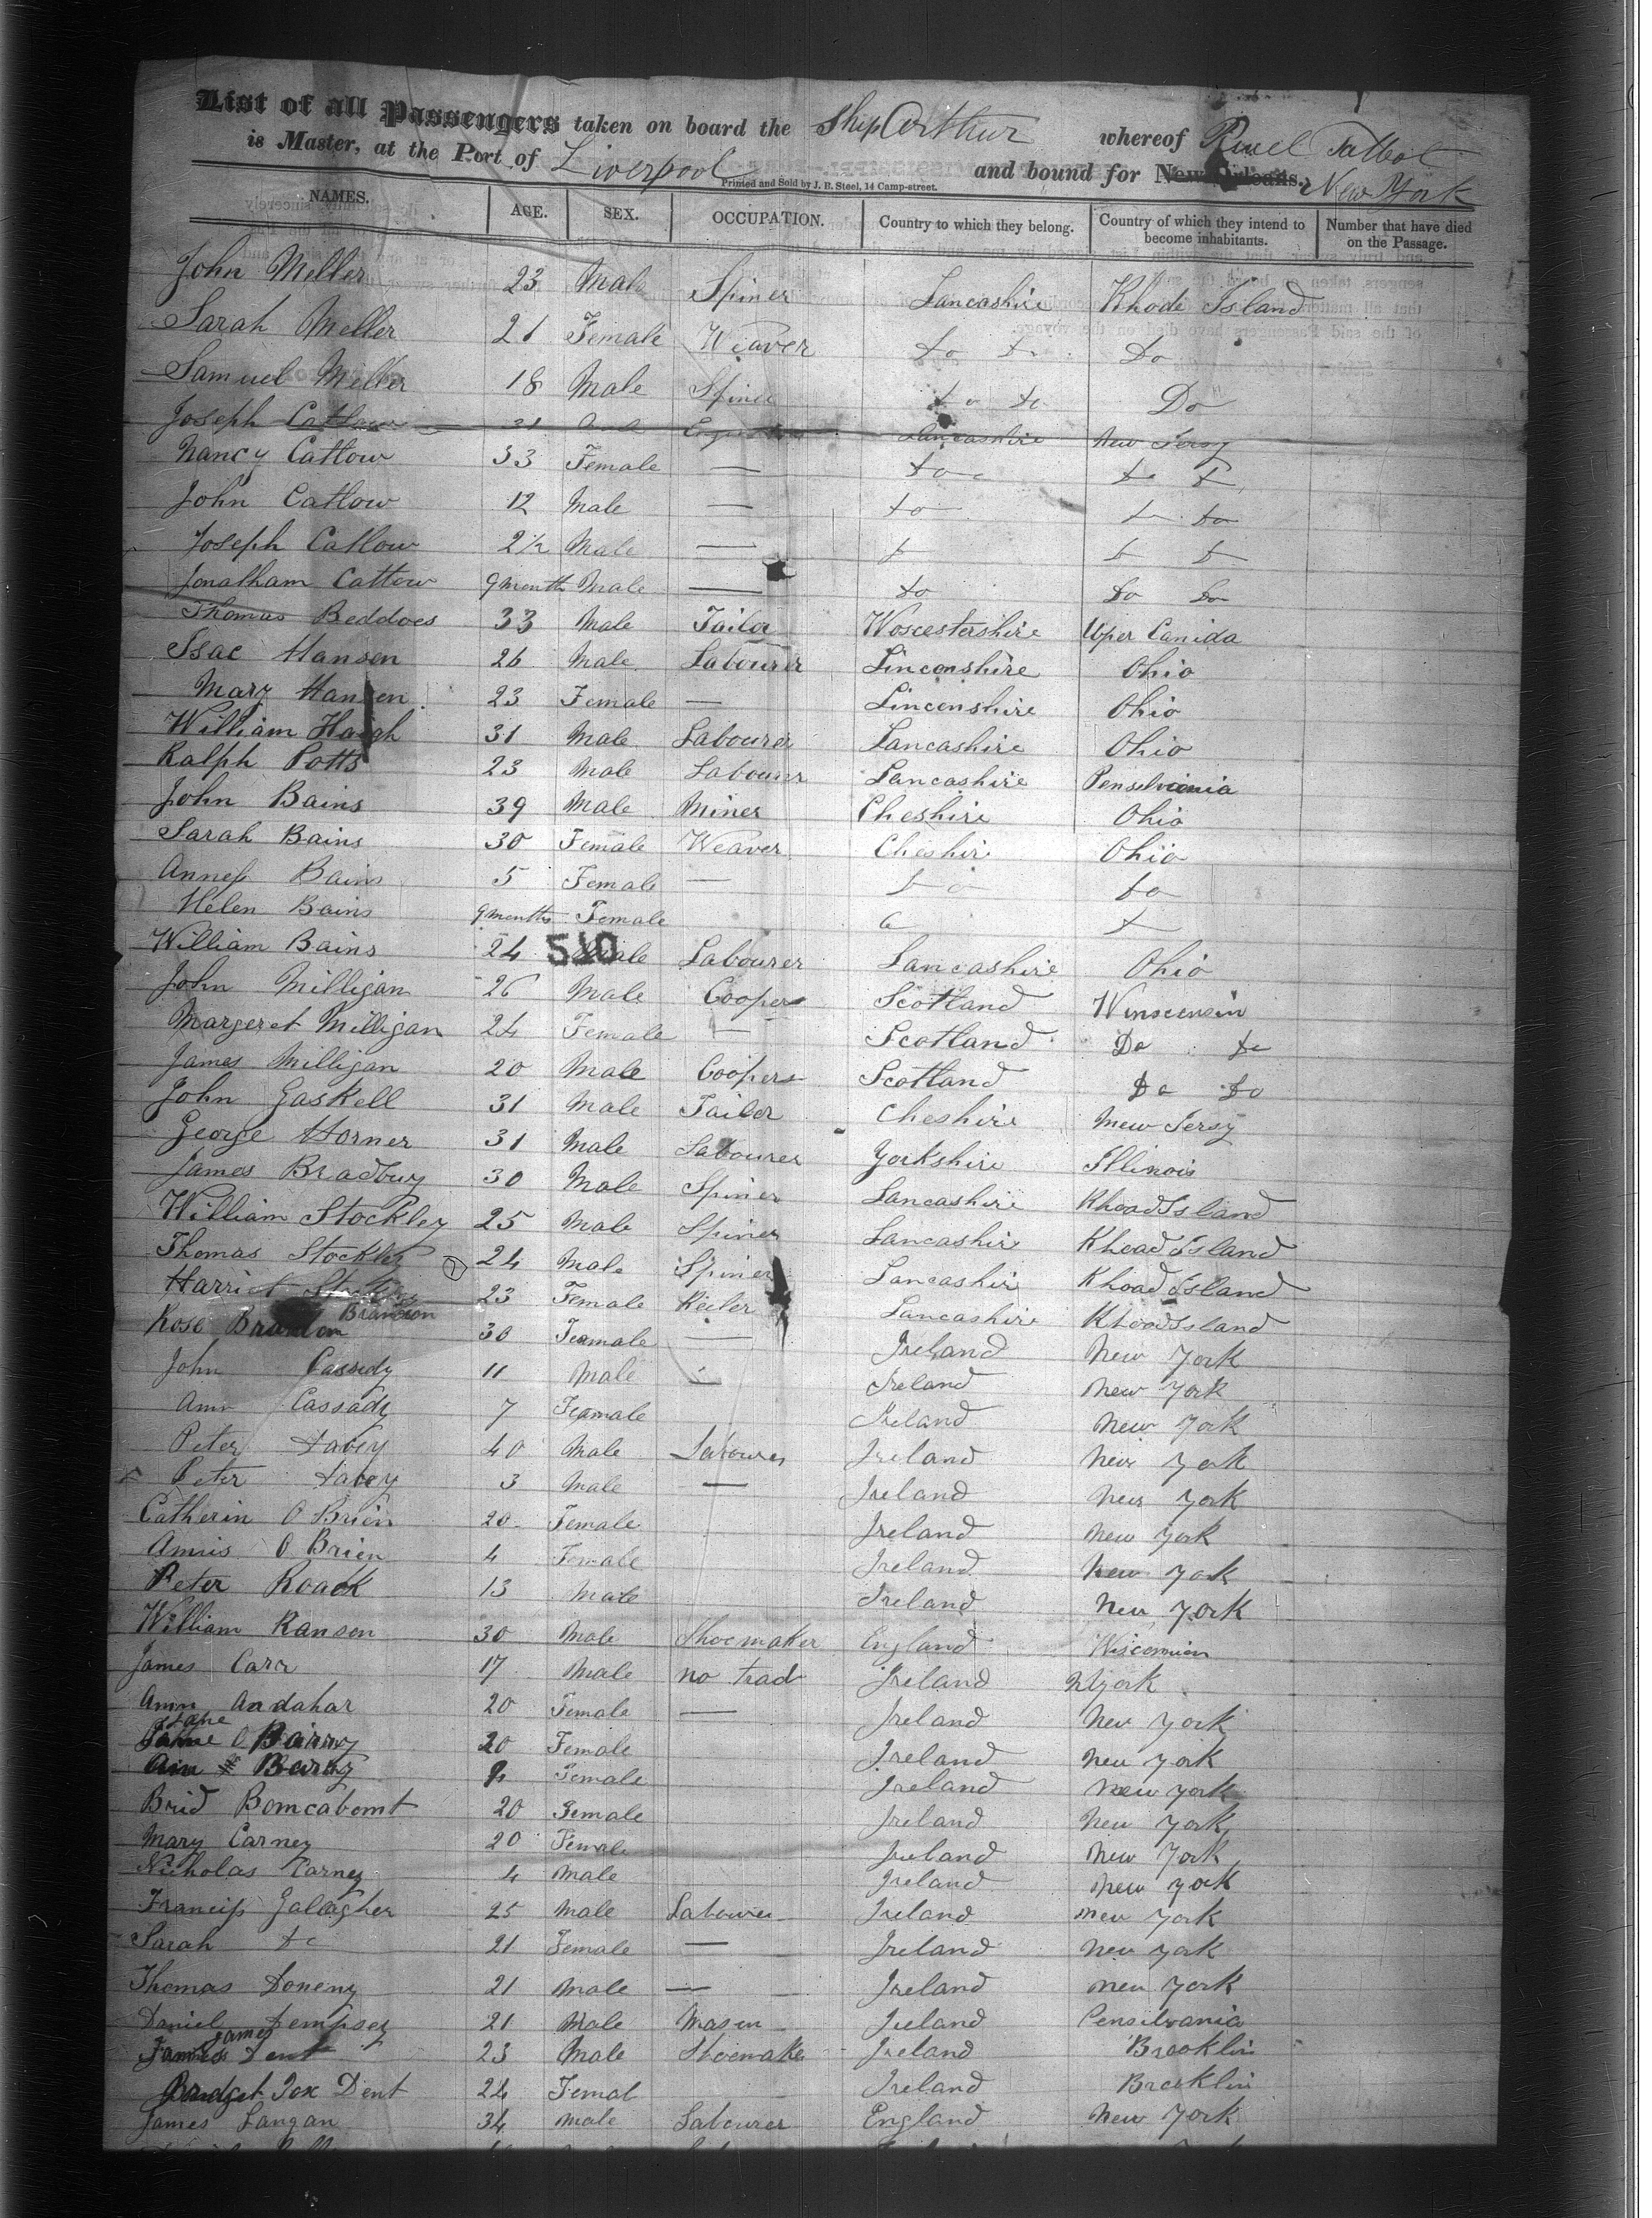 List of all Passengers taken on board the Ship Arthur whereof Ruel Talbot
is Master, at the Port of Liverpool and bound for New Orleans. New York
Printed and Sold by J. B. Steel, 14 Camp-street.
NAMES. AGE. SEX. OCCUPATION. Country to which they belong. Country of which they intend to become inhabitants. Number that have died on the Passage.
John Meller 23 Male Spiner Lancashire Rhode Island
Sarah Meller 21 Female Weaver do do Do
Samuel Meller 18 Male Spiner do do Do
Joseph Catlow Lancashire New Jersy
Nancy Catlow 33 Female — do do do
John Catlow 12 Male — do do do
Joseph Catlow 2½ Male — do do do
Jonatham Catlow 9 months Male — do Do Do
Thomas Beddoes 33 Male Tailor Woscestershire Uper Canida
Isac Hansen 26 Male Labourer Linconshire Ohio
Mary Hansen 23 Female — Linconshire Ohio
William Haigh 31 Male Labourer Lancashire Ohio
Ralph Potts 23 Male Labourer Lancashire Penselvinia
John Bains 39 Male Miner Cheshire Ohio
Sarah Bains 30 Female Weaver Cheshir Ohio
Anness Bains 5 Female — do do
Helen Bains 9 months Female
510
William Bains 24 Male Labourer Lancashire Ohio
John Milligan 26 Male Cooper Scotland Winsconsin
Margeret Milligan 24 Female — Scotland Do do
James Milligan 20 Male Cooper Scotland Do Do
John Gaskell 31 Male Tailor Cheshire New Jersy
George Horner 31 Male Labourer Yorkshire Illinois
James Bradbury 30 Male Spiner Lancashire RhoadIsland
William Stockley 25 Male Spiner Lancashire Rhoad Island
Thomas Stockley 24 Male Spiner Lancashire Rhoad Island
Harriet 23 Female Reeler Lancashire RhoadIsland
Brannon
Rose 30 Feamale — Ireland New York
John Cassedy 11 Male — Ireland New York
Ann Cassady 7 Feamale Ireland New York
Peter Davey 40 Male Labourer Ireland New York
Peter Davey 3 Male — Ireland New York
Catherin O Brien 20 Female Ireland New York
O Brien 4 Female Ireland New York
Peter Roack 13 Male Ireland New York
William Ranson 30 Male Shoemaker England Wisconsin
James Carr 17 Male no trad Ireland NYork
Ann Andahar 20 Female — Ireland New York
Jane
O Barry 20 Female Ireland New York
Barry Female Ireland New York
Brid Bomcabomt 20 Female Ireland New York
Mary Carney 20 Female Ireland New York
Nicholas Carney 4 Male Ireland New York
Franciss Gallagher 25 Male Labourer Ireland New York
Sarah do 21 Female — Ireland New York
Thomas Doneny 21 Male — Ireland New York
Daniel Dempsey 21 Male Mason Ireland Pensilvania
James
James Dent 23 Male Shoemaker Ireland Brooklin
Bridget Fox Dent 24 Femal Ireland Brooklin
James Langan 34 Male Labourer England New York